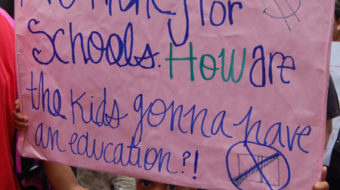 for
Schools. How are
the kids gonna have
an education?!